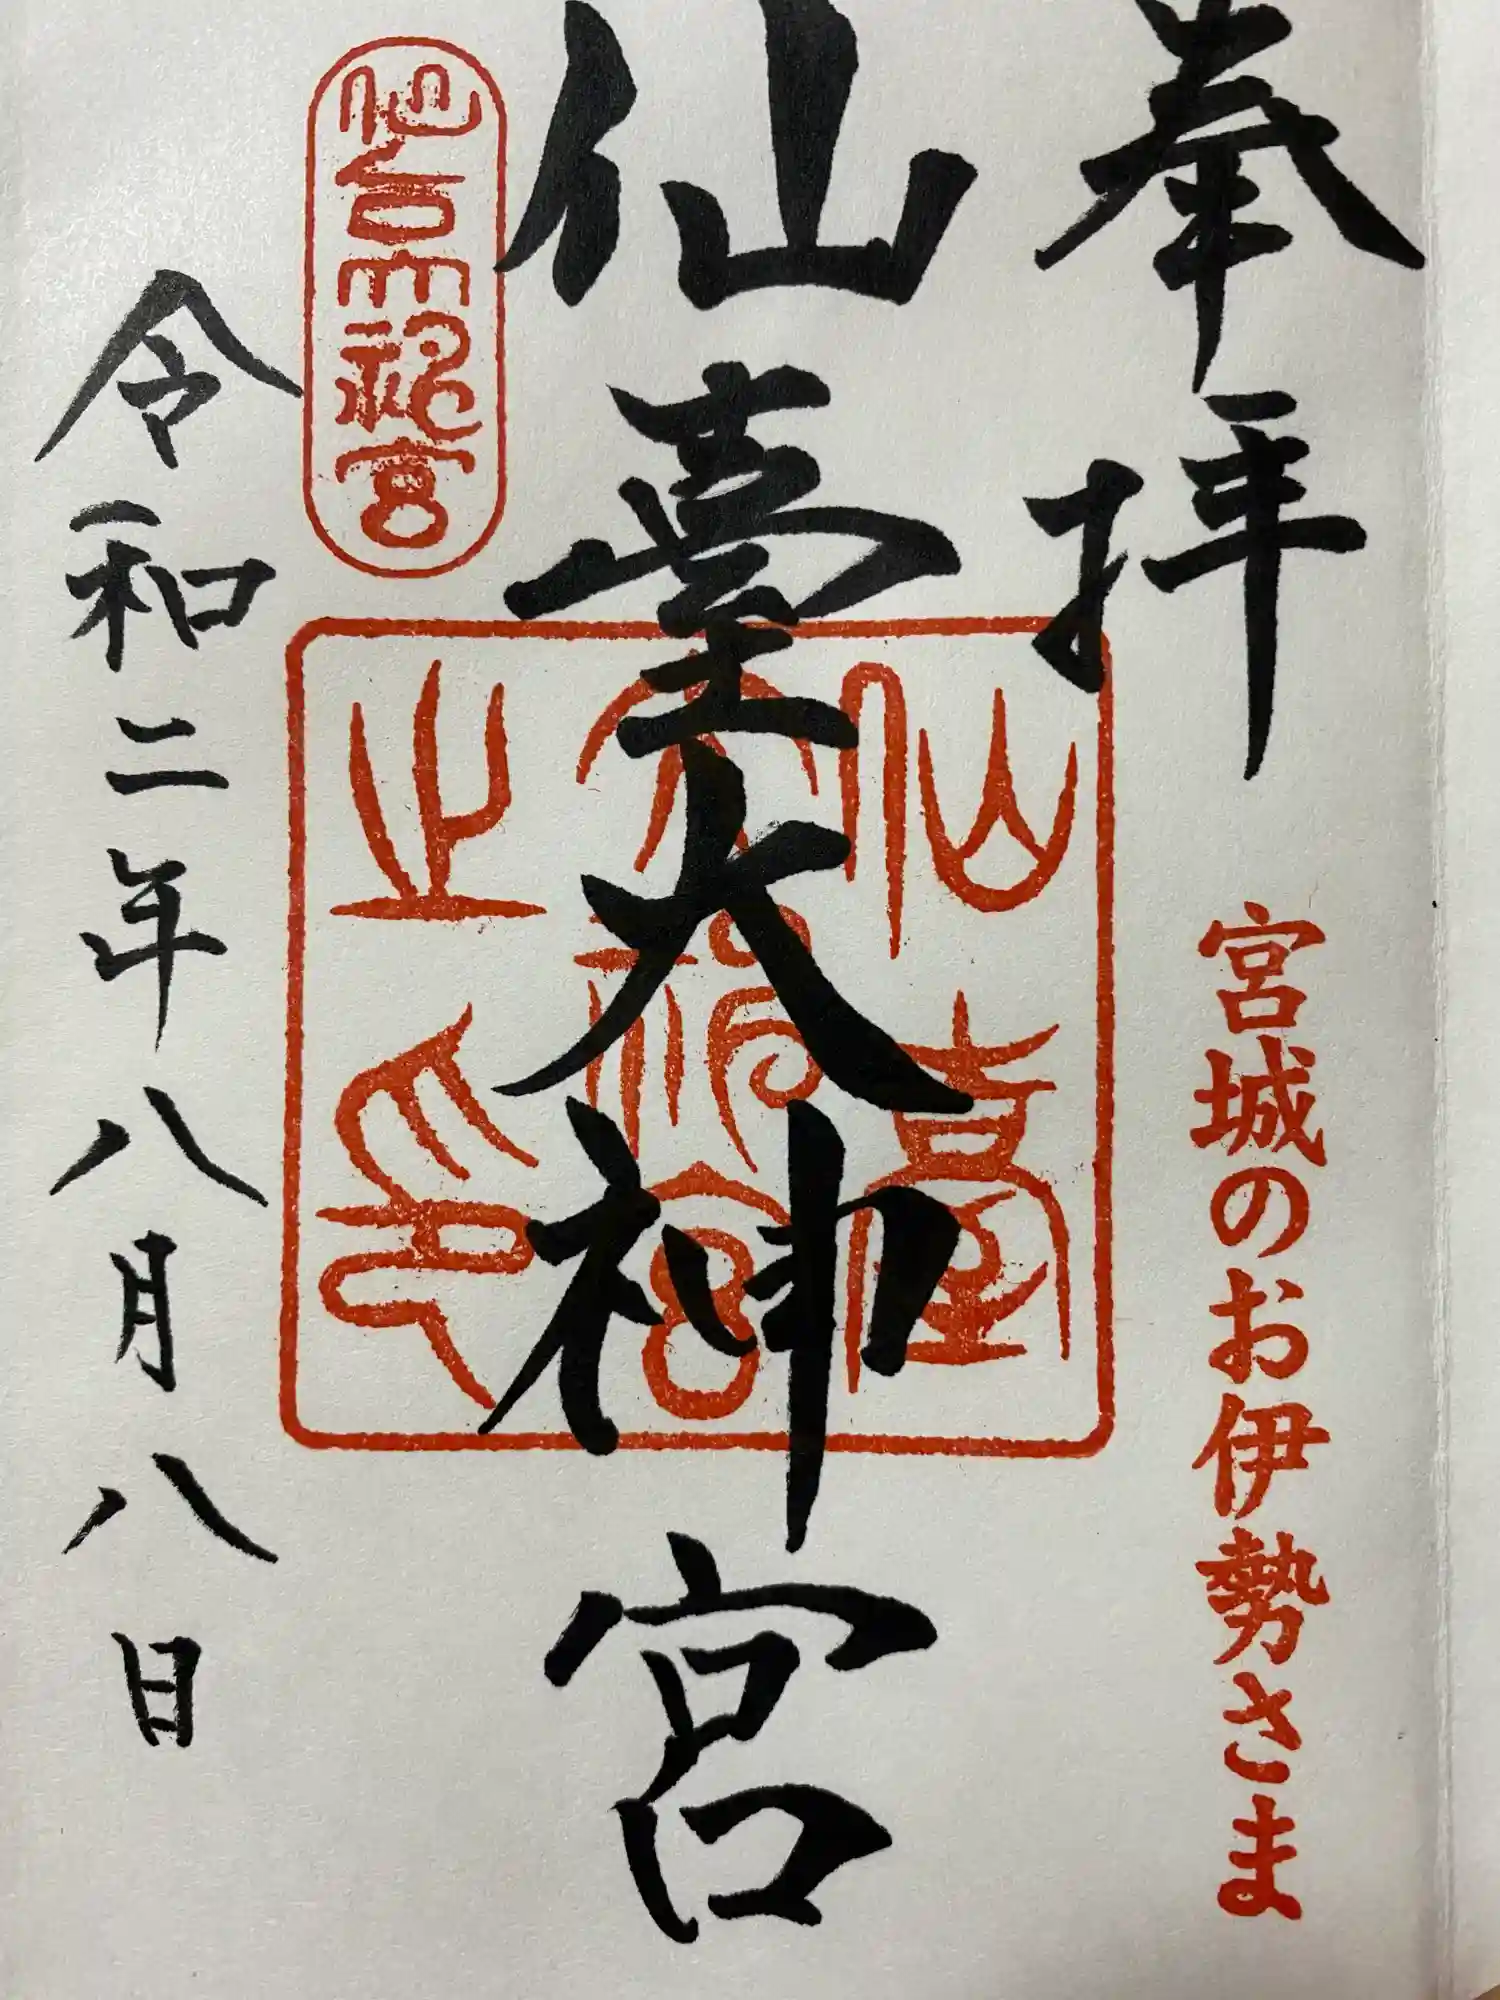 奉拝
宮城のお伊勢さま
仙臺大神宮
仙臺大神宮之印
令和二年八月八日